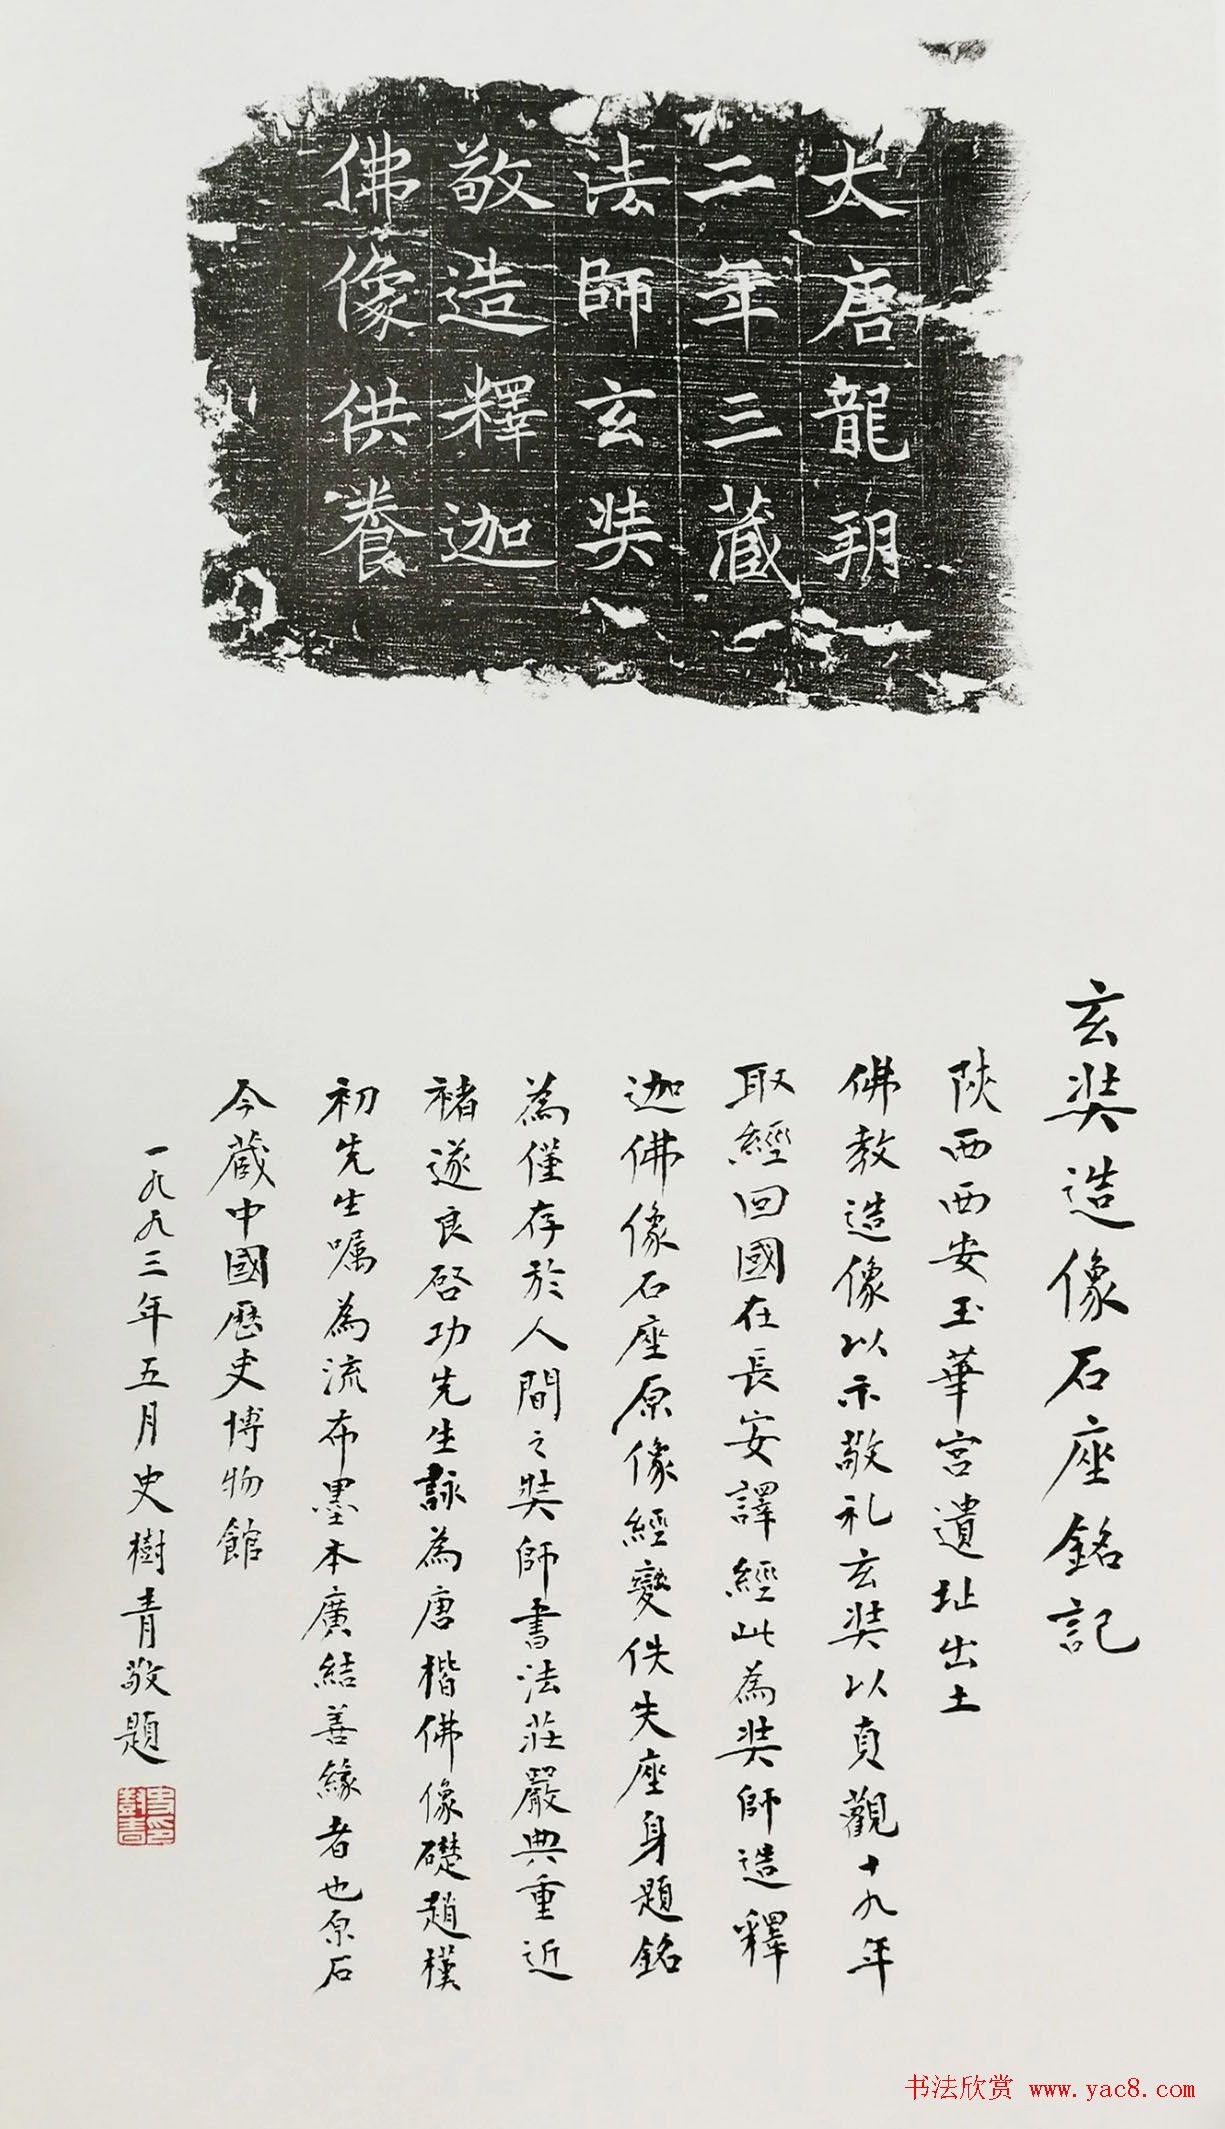 大唐龍朔
二年三藏
法師玄奘
敬造釋迦
佛像供養
玄奘造像石座銘記
陝西西安玉華宮遺址出土
佛教造像以示敬礼玄奘以貞觀十九年
取經回國在長安譯經此為奘師造釋
迦佛像石座原像經變佚失座身題銘
為僅存於人間之奘師書法莊嚴典重近
褚遂良启功先生詠為唐楷佛像礎趙樸
初先生嘱為流布墨本廣結善緣者也原石
今藏中國歷史博物館
一九九三年五月史樹青敬題
史樹青印
书法欣赏 www.yac8.com